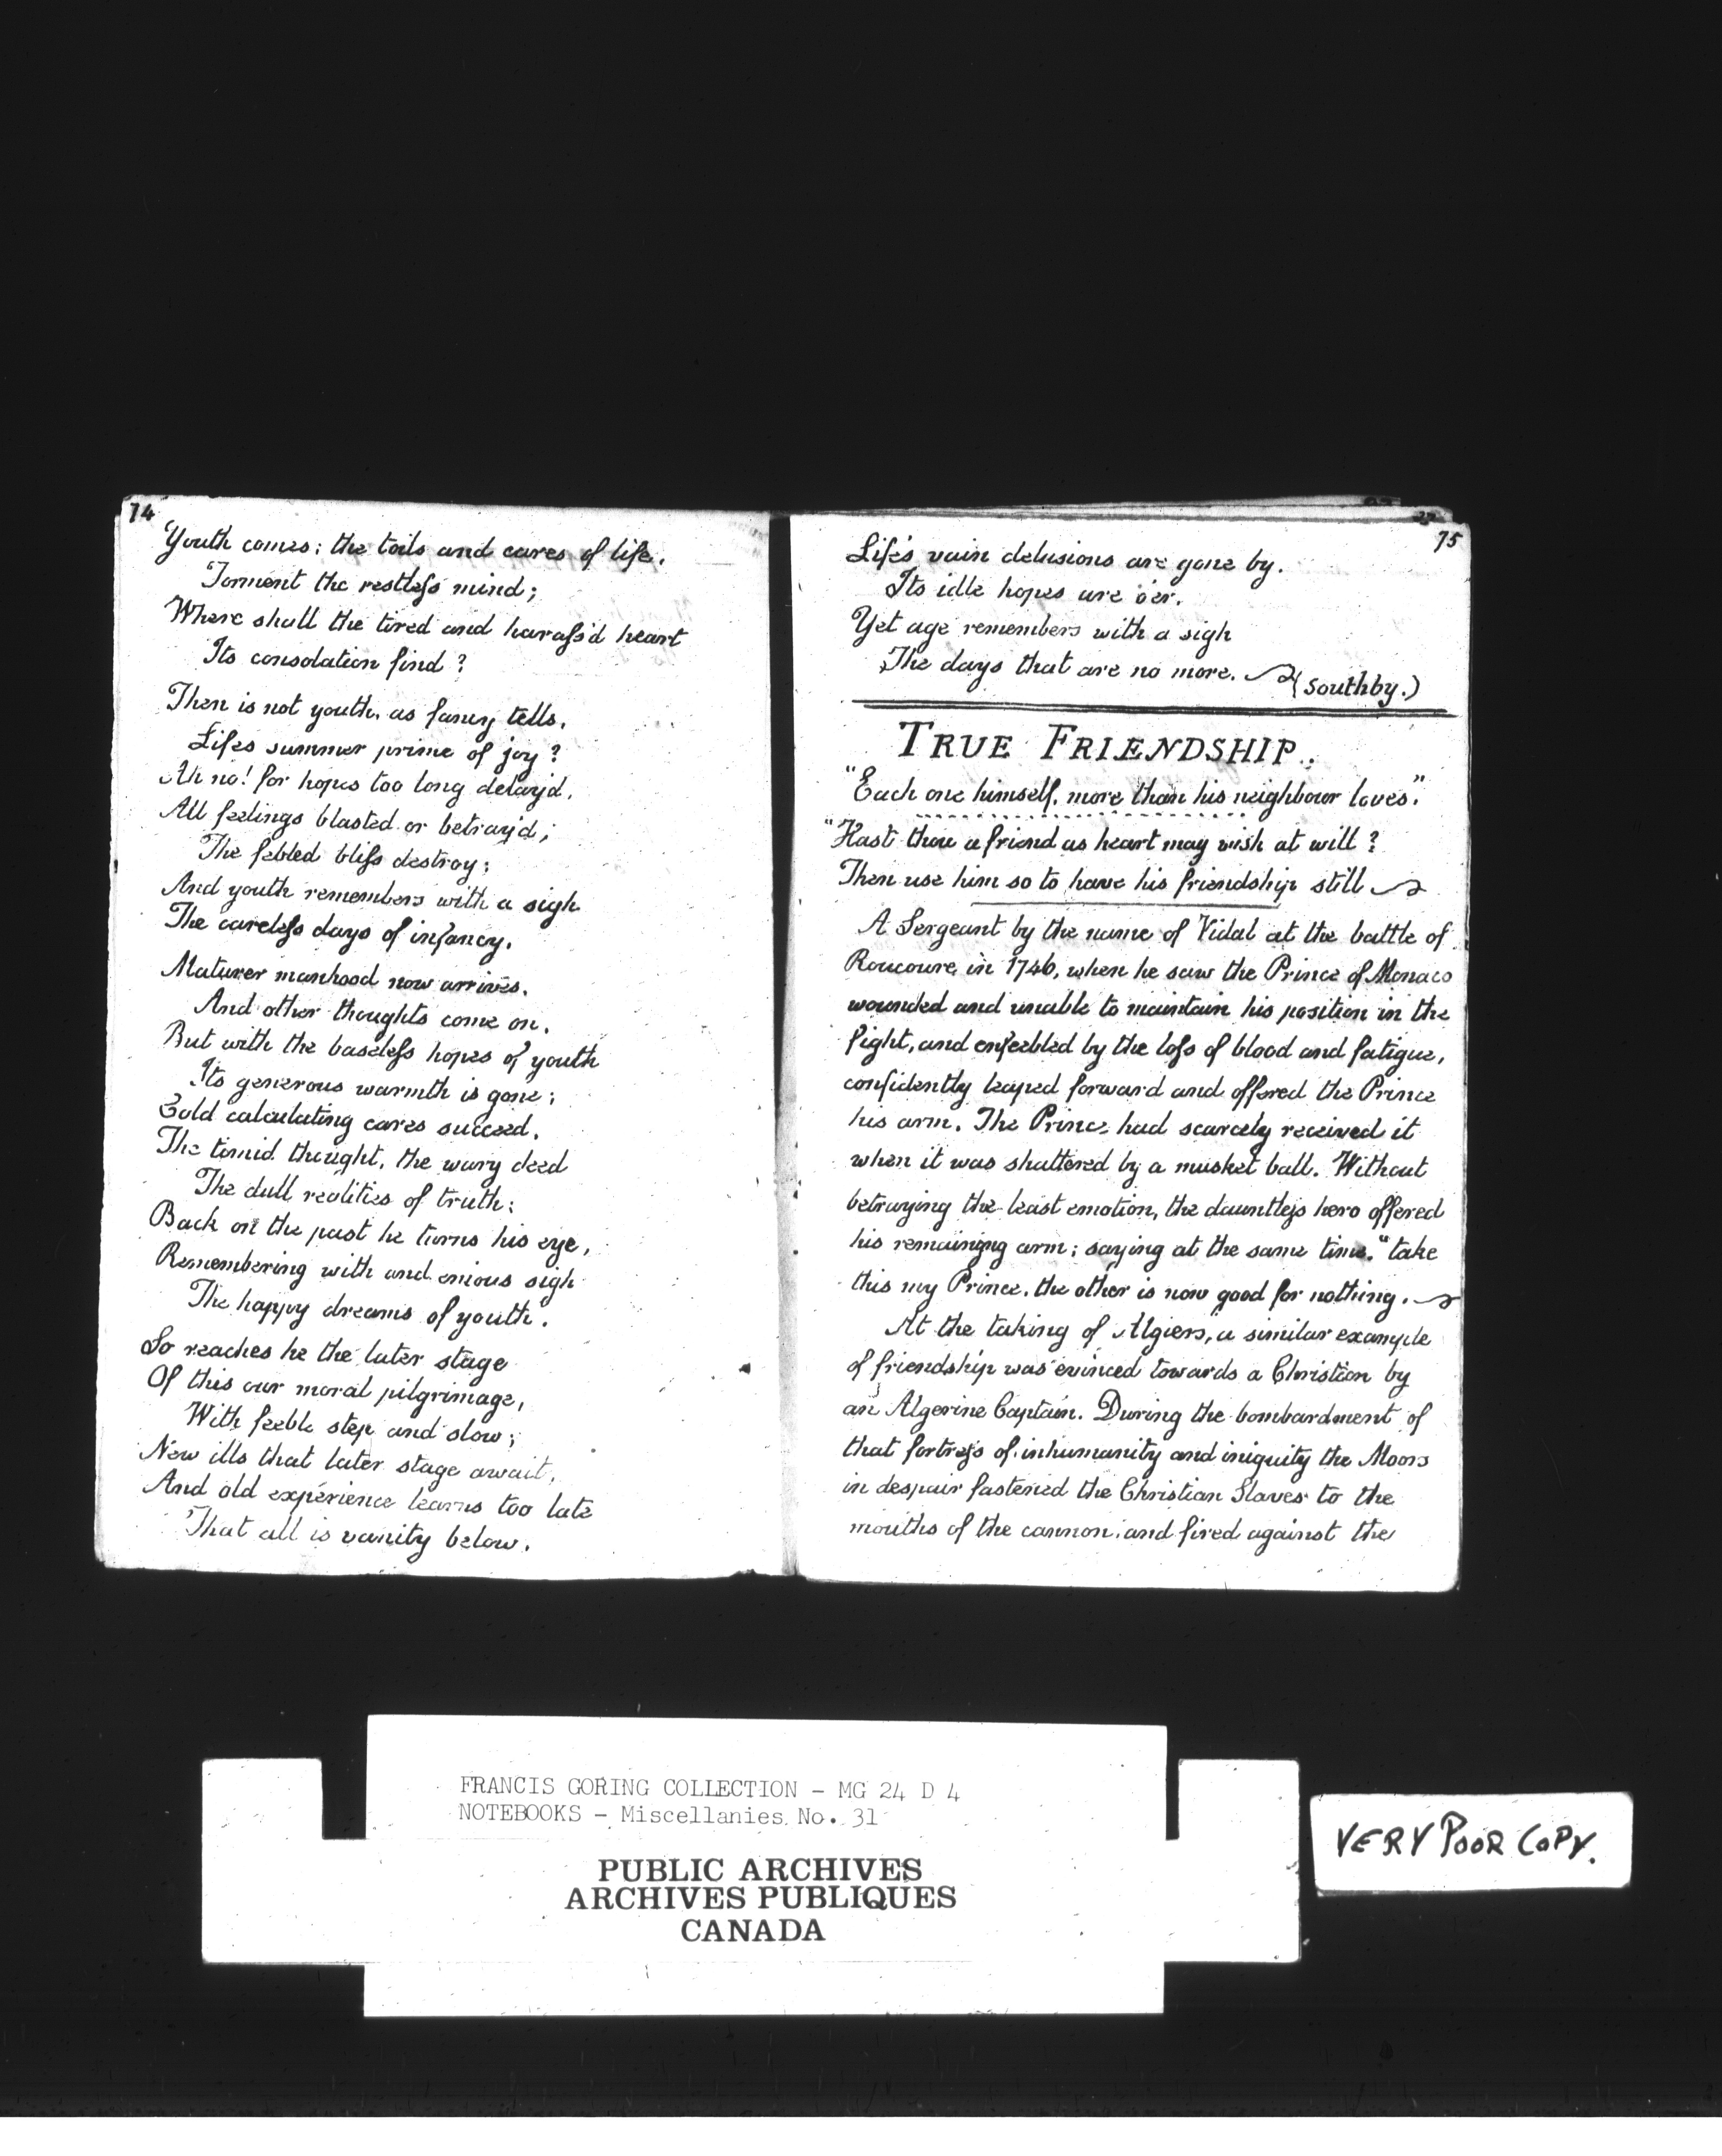 74
Youth comes; the toils and cares of life,
Torment the restless mind;
Where shall the tired and harass'd heart
Its consolation find?
Then is not youth, as fancy tells,
Lifes summer prime of joy?
Ah no! for hopes too long delay'd,
All feelings blasted or betray'd;
The febled bliss destroy;
And youth remembers with a sigh
The careless days of infancy.
Maturer manhood now arrives,
And other thoughts come on,
But with the baseless hopes of youth
Its generous warmth is gone;
Cold calculating cares succeed,
The timid thought, the wary deed
The dull realities of truth;
Back on the past he turns his eye,
Remembering with and enious sigh
The happy dreams of youth.
So reaches he the later stage
Of this our moral pilgrimage,
With feeble step and slow;
New ills that later stage await,
And old experience learns too late
That all is vanity below.
75
Life's vain delusions are gone by.
Its idle hopes are o'er.
Yet age remembers with a sigh
The days that are no more.
(Southby.)
TRUE FRIENDSHIP.
"Each one himself, more than his neighbour loves."
"Hast thou a friend as heart may wish at will?
Then use him so to have his friendship still
A Sergeant by the name of Vidal at the battle of
Roucoure, in 1746, when he saw the Prince of Monaco
wounded and unable to maintain his position in the
fight, and enfeebled by the loss of blood and fatigue,
confidently leaped forward and offered the Prince
his arm. The Prince had scarcely received it
when it was shattered by a musket ball. Without
betraying the least emotion, the dauntless hero offered
his remaining arm; saying at the same time, "take
this my Prince, the other is now good for nothing.
At the taking of Algiers, a similar example
of friendship was evinced towards a Christian by
an Algerine Captain. During the bombardment of
that fortress of inhumanity and iniquity the Moors
in despair fastened the Christian Slaves to the
mouths of the cannon, and fired against the
FRANCIS GORING COLLECTION - MG 24 D 4
NOTEBOOKS - Miscellanies No. 31
PUBLIC ARCHIVES
ARCHIVES PUBLIQUES
CANADA
VERY POOR COPY.